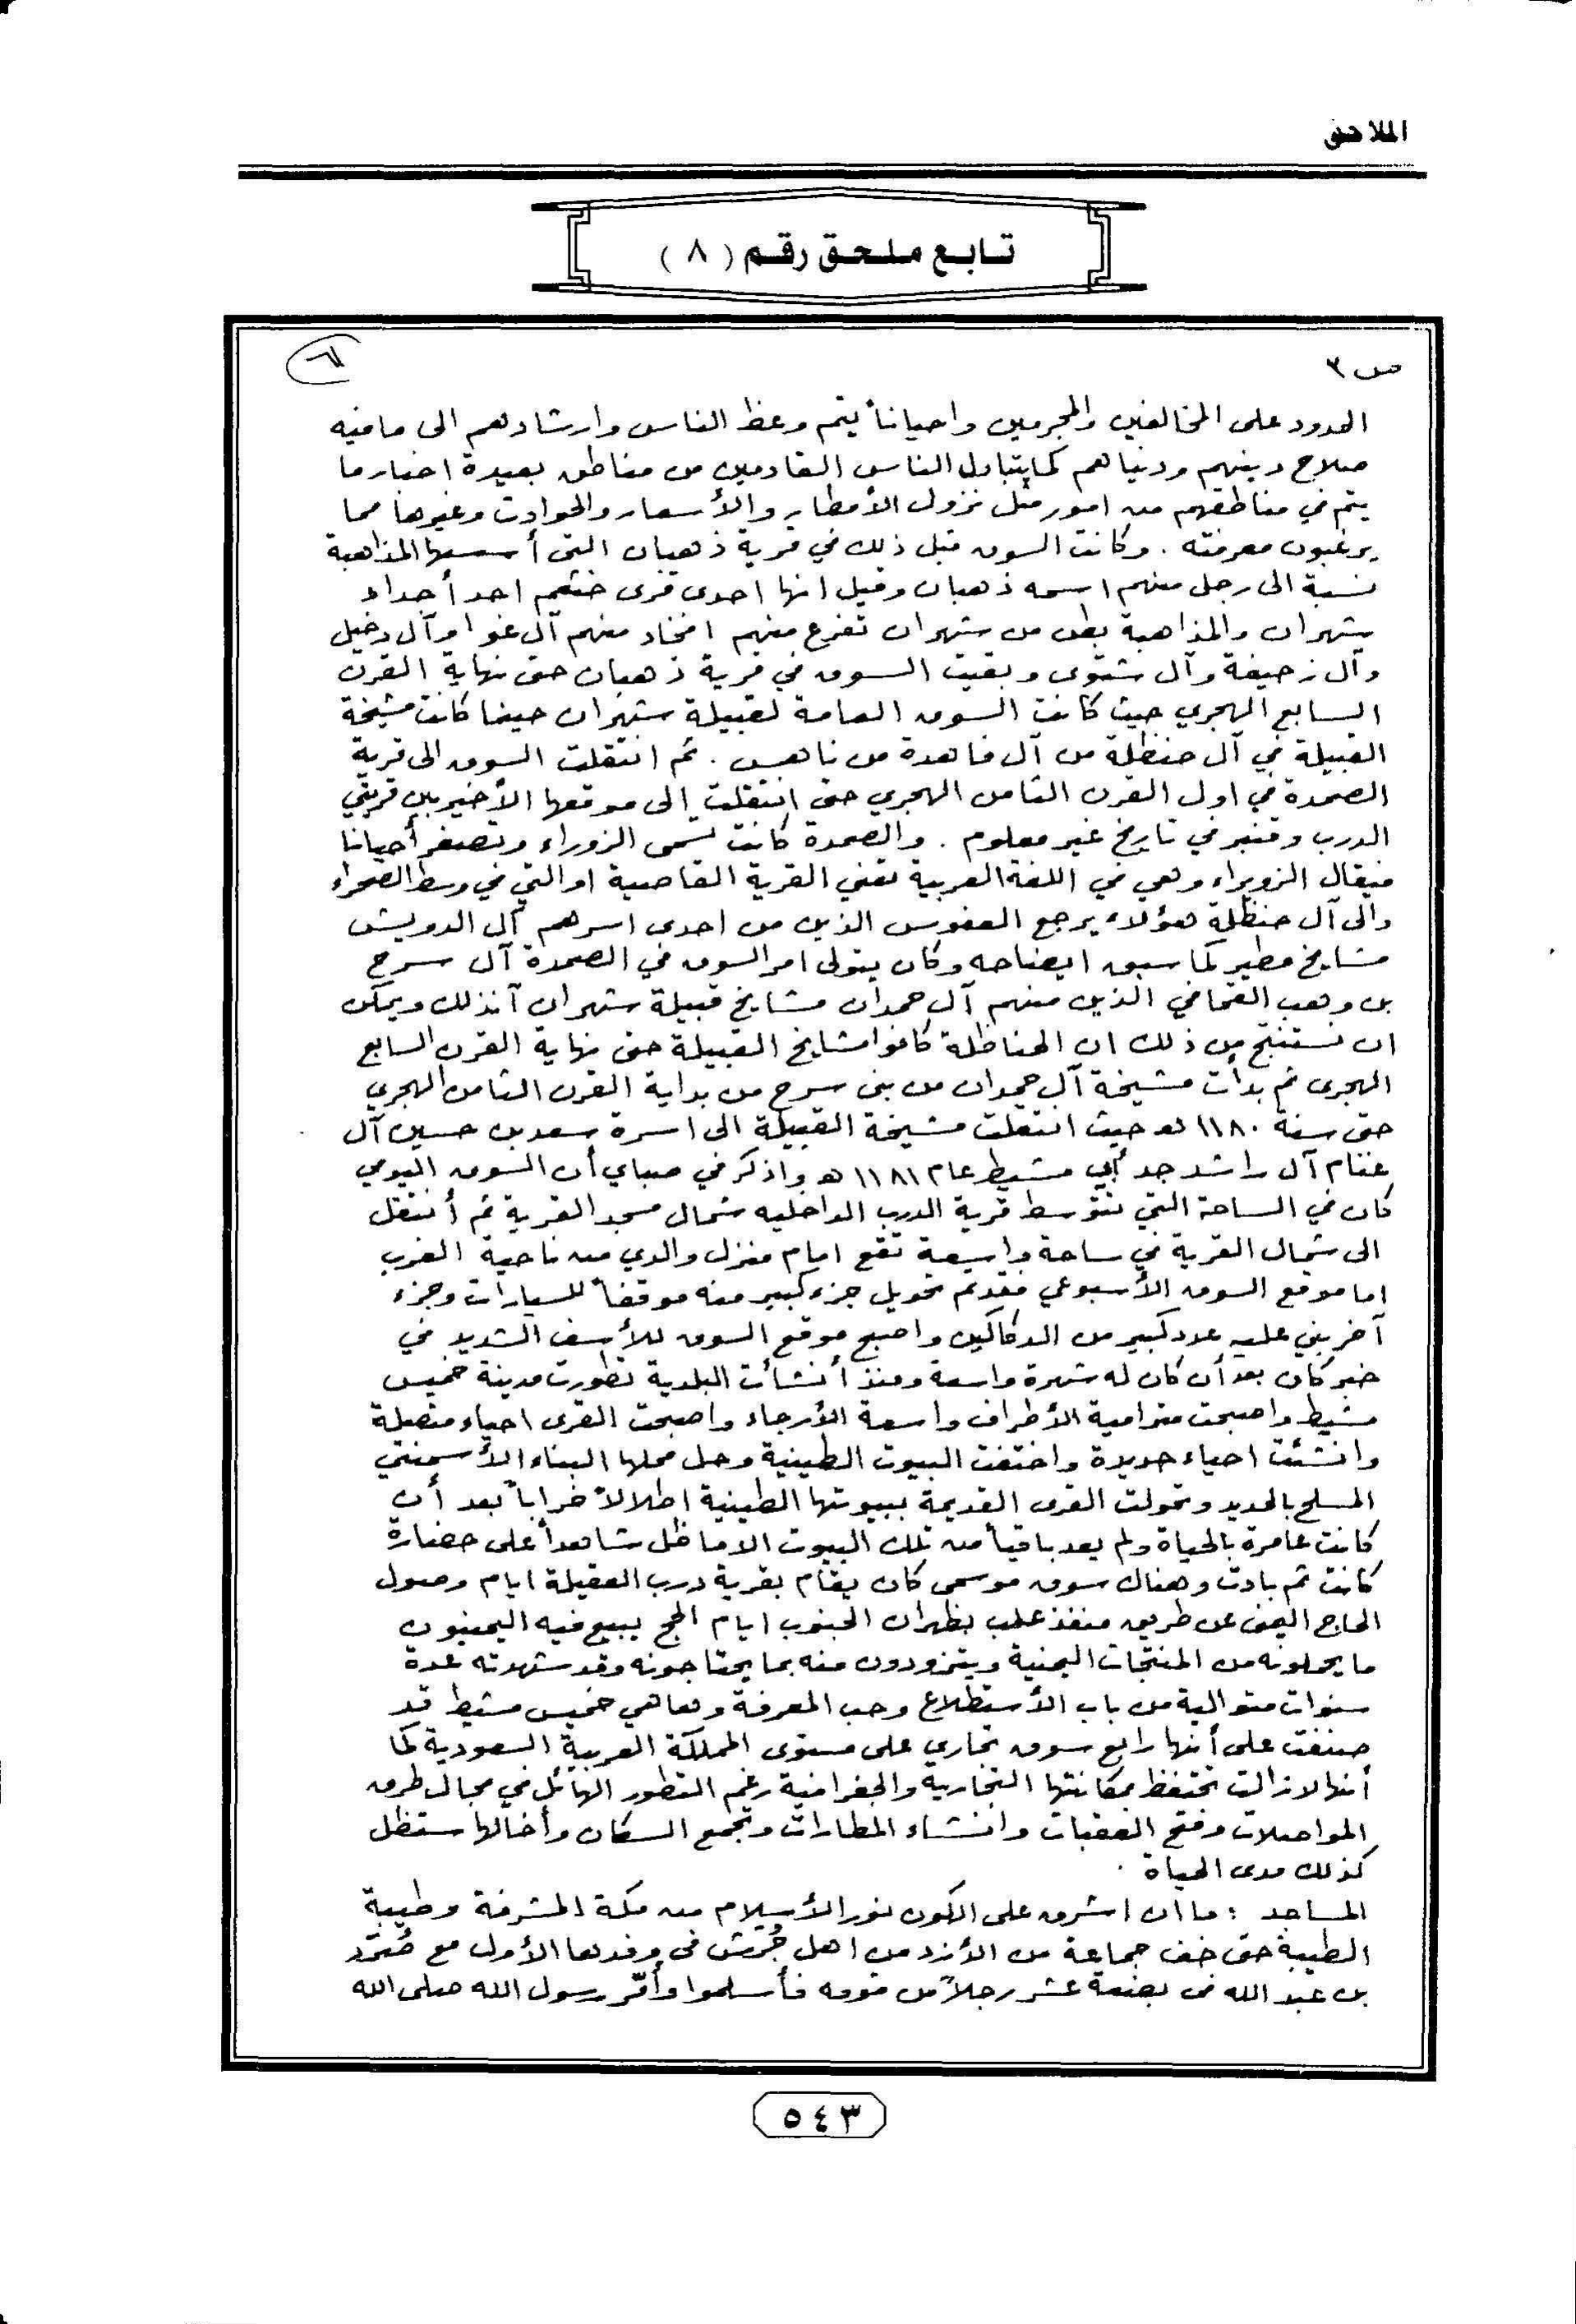 الملاحق
تابع ملحق رقم ( ٨ )
ص ٣
الحدود على المخالفين والمجرمين واحياناً يتم وعظ الناس وارشادهم الى مافيه
صلاح دينهم ودنياهم كما يتبادل الناس القادمين من مناطق بعيدة اخبار ما
يتم في مناطقهم من امور مثل نزول الأمطار والأسعار والحوادث وغيرها مما
يرغبون معرفته . وكانت السوق قبل ذلك في قرية ذهبان التي أسسها المذاهبة
نسبة الى رجل منهم اسمه ذهبان وقيل انها احدى قرى خثعم احد أجداد
شهران والمذاهبة بطن من شهران تفرع منهم افخاذ منهم آل غوا وآل دخيل
وآل زحيفة وآل شتوى وبقيت السوق في قرية ذهبان حتى نهاية القرن
السابع الهجري حيث كانت السوق العامة لقبيلة شهران حينما كانت مشيخة
القبيلة في آل حنظلة من آل فاهدة من ناهس . ثم انتقلت السوق الى قرية
الصمدة في اول القرن الثامن الهجري حتى انتقلت الى موقعها الأخير بين قريتي
الدرب وقنبر في تاريخ غير معلوم . والصمدة كانت تسمى الزوراء وتصغر أحيانا
فيقال الزويراء وهي في اللغة العربية تعني القرية القاصية او التي في وسط الصحراء
والى آل حنظلة هؤلاء يرجع العفوس الذين من احدى اسرهم آل الدويش
مشايخ مطير كما سبق ايضاحه وكان يتولى امر السوق في الصمدة آل سرح
بن وهب القحافي الذين منهم آل حمدان مشايخ قبيلة شهران آنذلك ويمكن
ان نستنتج من ذلك ان الحناظلة كانوا مشايخ القبيلة حتى نهاية القرن السابع
الهجرى ثم بدأت مشيخة آل حمدان من بنى سرح من بداية القرن الثامن الهجري
حتى سنة ١١٨٠ هـ حيث انتقلت مشيخة القبيلة الى اسرة سعد بن حسين آل
غنام آل راشد جد أبي مشيط عام ١١٨١ هـ واذكر في صباي أن السوق اليومي
كان في الساحة التي تتوسط قرية الدرب الداخليه شمال مسجد القرية ثم أنتقل
الى شمال القرية في ساحة واسعة تقع امام منزل والدي من ناحية الغرب
اما موقع السوق الأسبوعي فقد تم تحويل جزء كبير منه موقفاً للسيارات وجزء
آخر بني عليه عدد كبير من الدكاكين واصبح موقع السوق للأسف الشديد في
خبر كان بعد أن كان له شهرة واسعة ومنذ أنشأت البلدية تطورت مدينة خميس
مشيط واصبحت مترامية الأطراف واسعة الأرجاء واصبحت القرى احياء متصلة
وانشئت احياء جديدة واختفت البيوت الطينية وحل محلها البناء الأسمنتي
المسلح بالحديد وتحولت القرى القديمة ببيوتها الطينية اطلالاً خراباً بعد أن
كانت عامرة بالحياة ولم يعد باقياً من تلك البيوت الا ما ظل شاهداً على حضارة
كانت ثم بادت وهناك سوق موسمى كان يقام بقرية درب العقيلة ايام وصول
الحاج اليمنى عن طريق منفذ علب بظهران الجنوب ايام الحج يبيع فيه اليمنيون
ما يحملونه من المنتجات اليمنية ويتزودون منه بما يحتاجونه وقد شهدته عدة
سنوات متوالية من باب الأستطلاع وحب المعرفة وهاهي خميس مشيط قد
صنفت على أنها رابع سوق تجاري على مستوى المملكة العربية السعودية كما
أنها لازالت تحتفظ بمكانتها التجارية والجغرافية رغم التطور الهائل في مجال طرق
المواصلات وفتح العقبات وانشاء المطارات وتجمع السكان وأخالها ستظل
كذلك مدى الحياة .
المساجد : ما ان اشرق على الكون نور الأسلام من مكة المشرفة وطيبة
الطيبة حتى خف جماعة من الأزد من اهل جُرَش فى وفدها الأول مع صُرَد
بن عبد الله فى بضعة عشر رجلاً من قومه فأسلموا وأمّر رسول الله صلى الله
٥٤٣